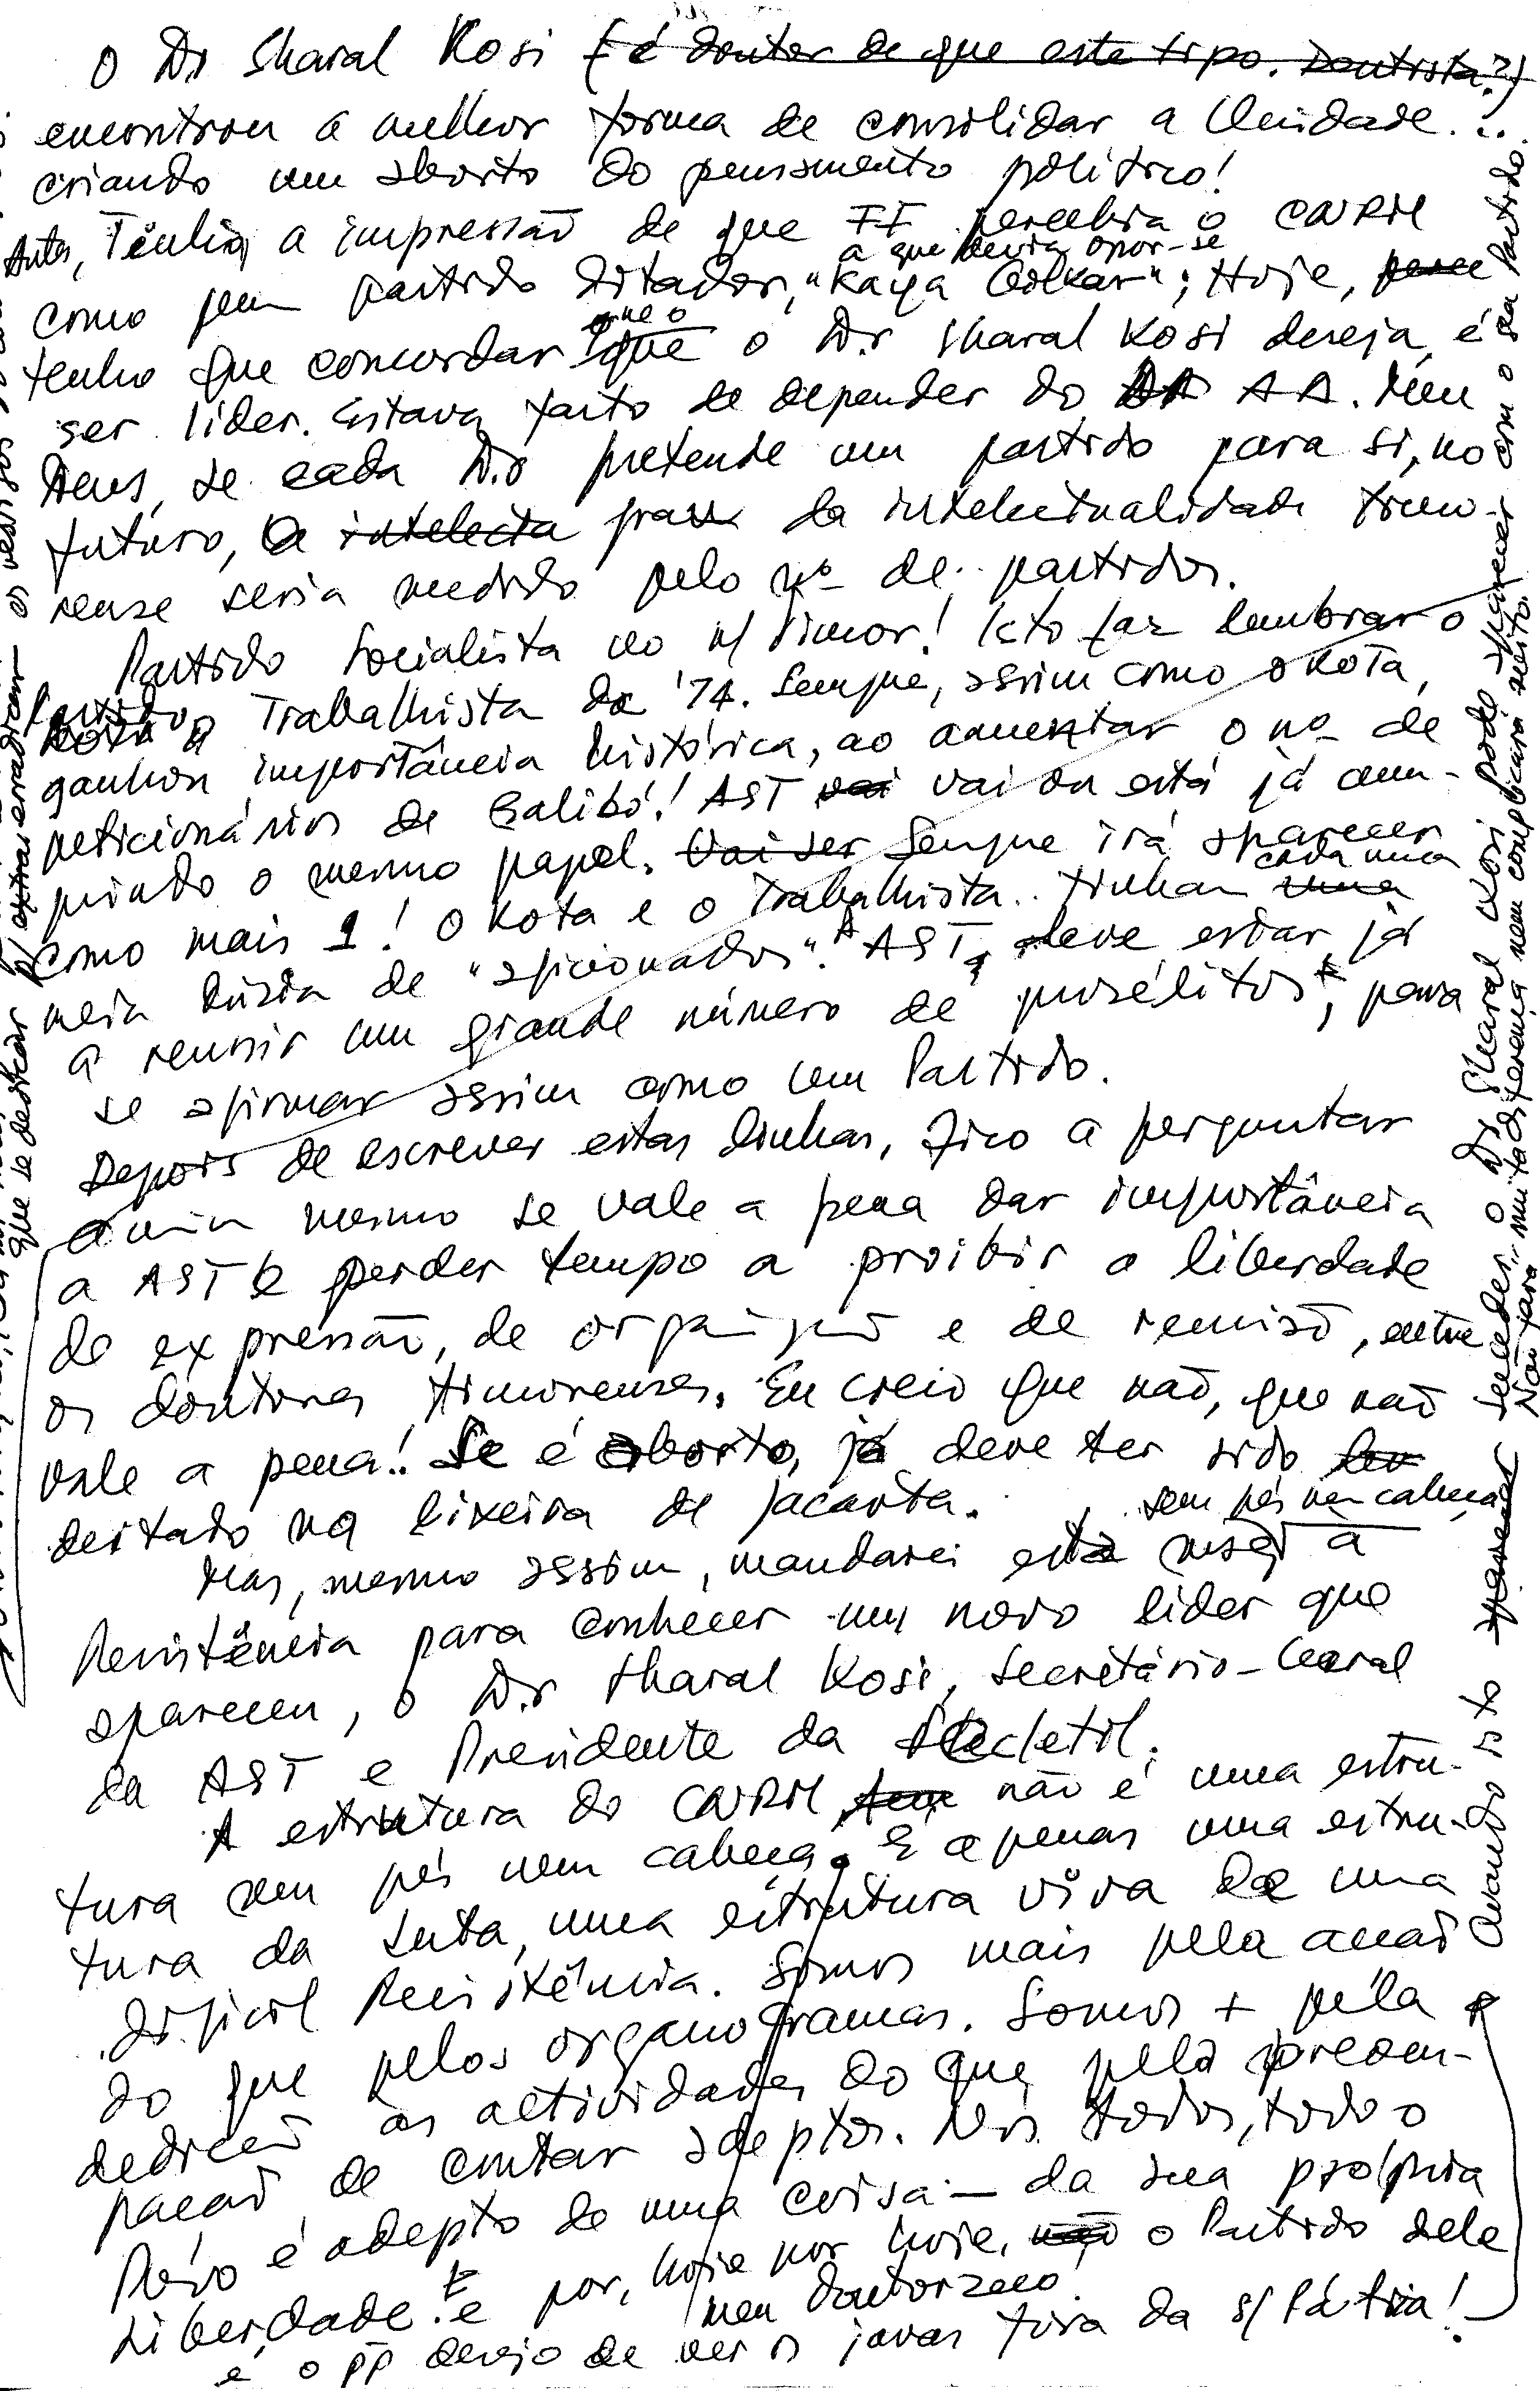 O Dr Sharal Kosi (é doutor de que este tipo. Dentista?)
encontrou a melhor forma de consolidar a Unidade...
criando um aborto do pensamento político!
Antes, Tenho a impressão de que FF percebia o CNRM
a que devia opor-se
como um partido ditador, "Kaya Golkar"; Hoje,
que o
tenho que concordar que o Dr Sharal Kosi deseja é
ser líder. Estava farto de depender do AA. Meu
Deus, se cada Dr pretende um partido para si, no
futuro, o intelecta grau da intelectualidade timo-
rense seria medido pelo nº de partidos.
Partido Socialista no n/ Timor! Isto faz lembrar o
Partido Trabalhista de '74. Sempre, assim como o KOTA,
ganhou importância histórica, ao aumentar o nº de
peticionários de Balibó! AST vai vai ou está já cum-
prindo o mesmo papel. Vai ser Sempre irá aparecer
cada um
como mais 1! O Kota e o Trabalhista.. tinham uma
meia dúzia de "aficionados". A AST, deve estar já
a reunir um grande número de prosélitos, para
se afirmar assim como um Partido.
Depois de escrever estas linhas, fico a perguntar
a mim mesmo se vale a pena dar importância
a AST e perder tempo a proibir a liberdade
de expressão, de organização e de reunião, entre
os doutores timorenses. Eu creio que não, que não
vale a pena!. Se é aborto, já deve ter sido
deitado na lixeira de Jacarta.
sem pés nem cabeça
Mas, mesmo assim, mandarei esta msg a
Resistência para conhecer um novo líder que
apareceu, o Dr Sharal Kosi, Secretário-Geral
da AST e Presidente da
A estrutura do CNRM tem não é uma estru-
tura sem pés nem cabeça. É apenas uma estru-
tura da Luta, uma estrutura viva de uma
difícil Resistência. Somos mais pela acção
do que pelos organogramas. Somos + pela
dedicação às actividades do que pela preocu-
pação de contar adeptos. Nós todos, todo o
Povo é adepto de uma coisa — da sua própria
Liberdade. E é por, hoje por hoje, não o Partido dele
meu doutorzeco!
e o pp desejo de ver os javas fora da s/ Pátria!
Quando isto aparecer suceder, o Dr Sharal Kosi pode aparecer com o seu Partido.
Não fará muita diferença nem complicará muito.
que se destacar p/ extras erradicam os vestígios